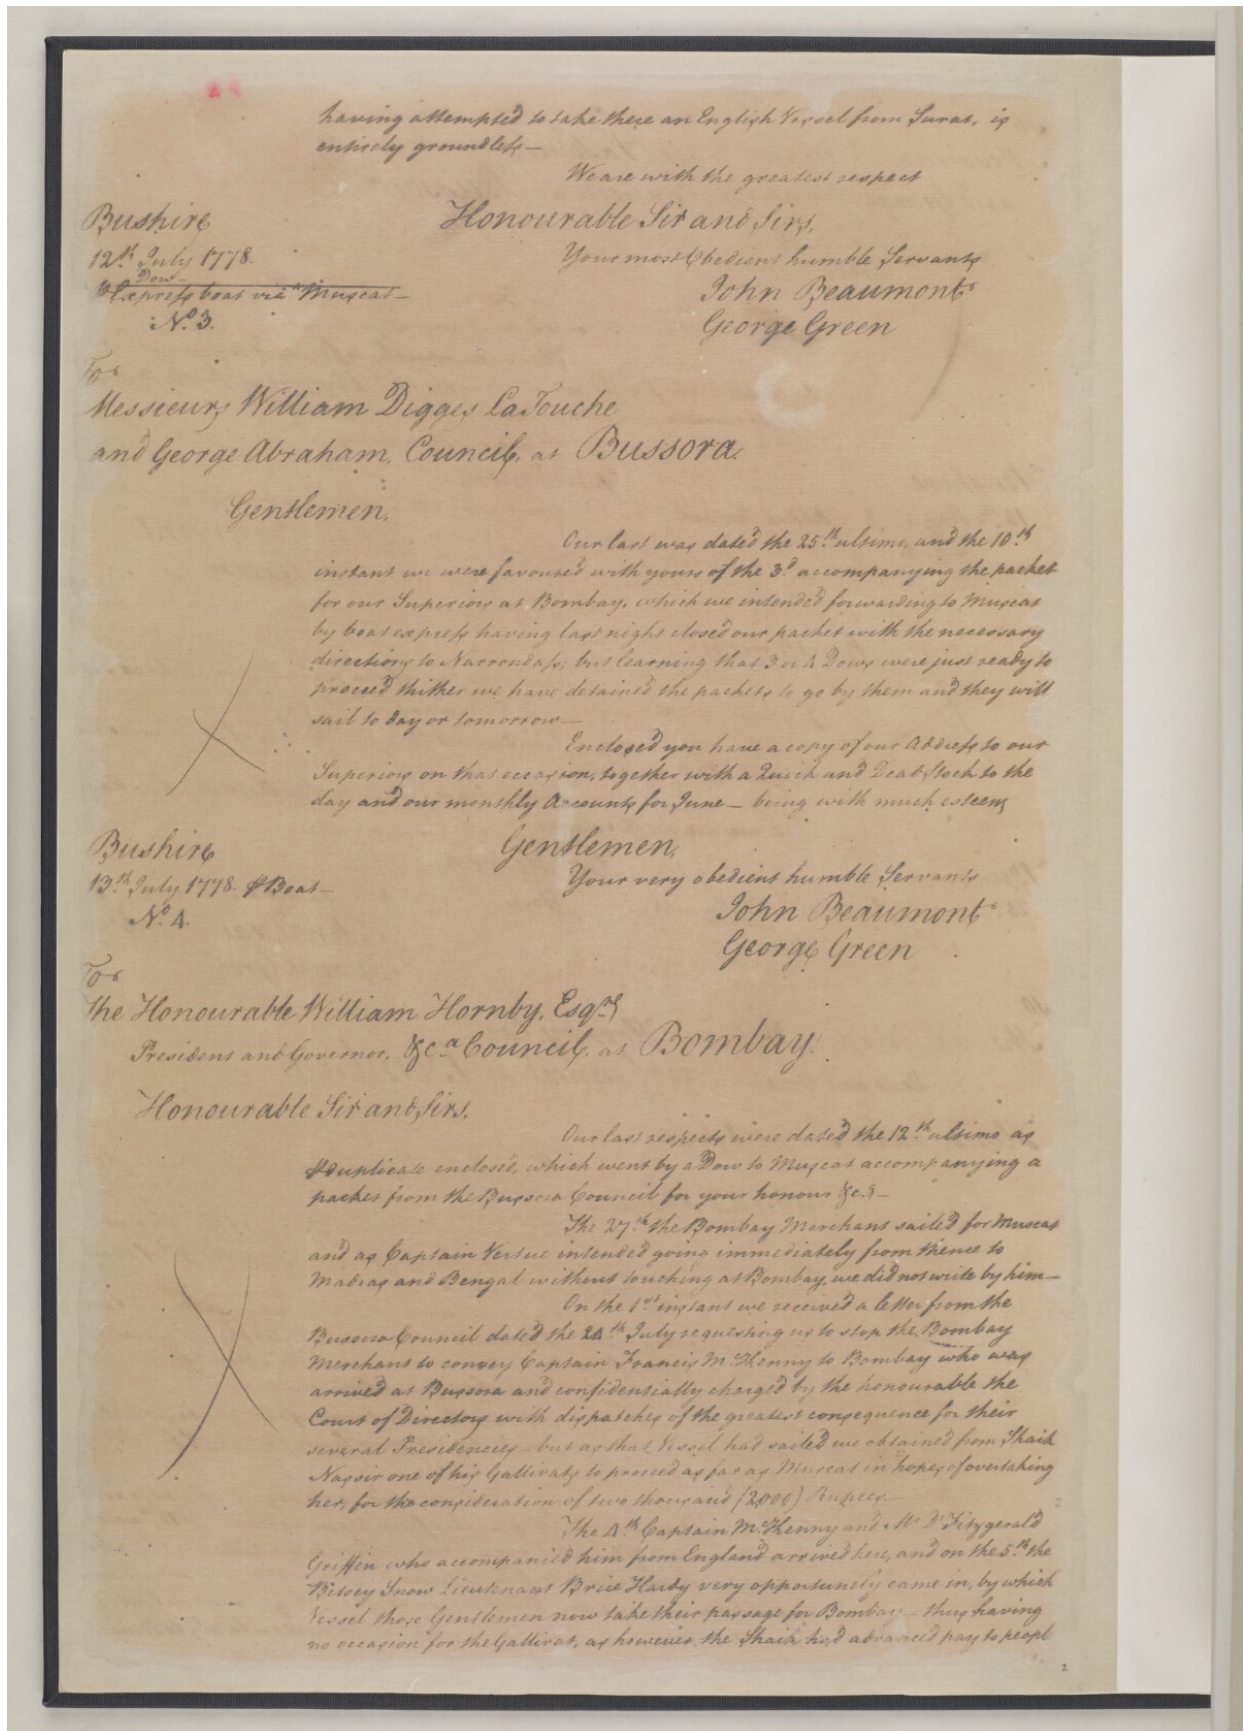 having attempted to take there an English Vessel from Surat, is
entirely groundless—
We are with the greatest respect
Bushire
Honourable Sir and Sirs,
12th July 1778.
Your most Obedient humble Servants
Dow
Express boat via Muscat—
John Beaumont
No. 3.
George Green
To
Messieurs William Digges LaTouche
and George Abraham, Council, at Bussora.
Gentlemen,
Our last was dated the 25th ultimo, and the 10th
instant we were favoured with yours of the 3d accompanying the packet
for our Superiors at Bombay, which we intended forwarding to Muscat
by boat express having last night closed our packet with the necessary
directions to Narrondass; but learning that 3 or 4 Dows were just ready to
proceed thither we have detained the packets to go by them and they will
sail to day or tomorrow—
Enclosed you have a copy of our Address to our
Superiors on that occasion, together with a Quick and Dead Stock to the
day and our monthly Accounts for June — being with much esteem
Bushire
Gentlemen,
13th July 1778. P Boat—
Your very obedient humble Servants
No. 4.
John Beaumont
George Green
To
The Honourable William Hornby, Esqre
President and Governor, &ca Council, at Bombay.
Honourable Sir and Sirs,
Our last respects were dated the 12th ultimo as
P duplicate enclosed, which went by a Dow to Muscat accompanying a
packet from the Bussora Council for your honour &ca—
The 27th the Bombay Merchant sailed for Muscat
and as Captain Vertue intended going immediately from thence to
Madras and Bengal without touching at Bombay, we did not write by him—
On the 1st instant we received a letter from the
Bussora Council dated the 24th July requesting us to stop the Bombay
Merchant to convey Captain Francis McKenny to Bombay who was
arrived at Bussora and confidentially charged by the honourable the
Court of Directors with dispatches of the greatest consequence for their
several Presidencies — but as that Vessel had sailed we obtained from Shaik
Nassir one of his Gallivats to proceed as far as Muscat in hopes of overtaking
her, for the consideration of two thousand (2,000) Rupees—
The 4th Captain McKenny and Mr D'Fitzgerald
Griffin who accompanied him from England arrived here, and on the 5th the
Betsey Snow Lieutenant Brice Hardy very opportunely came in, by which
Vessel those Gentlemen now take their passage for Bombay — thus having
no occasion for the Gallivat, as however the Shaik had advanced pay to peopl
2